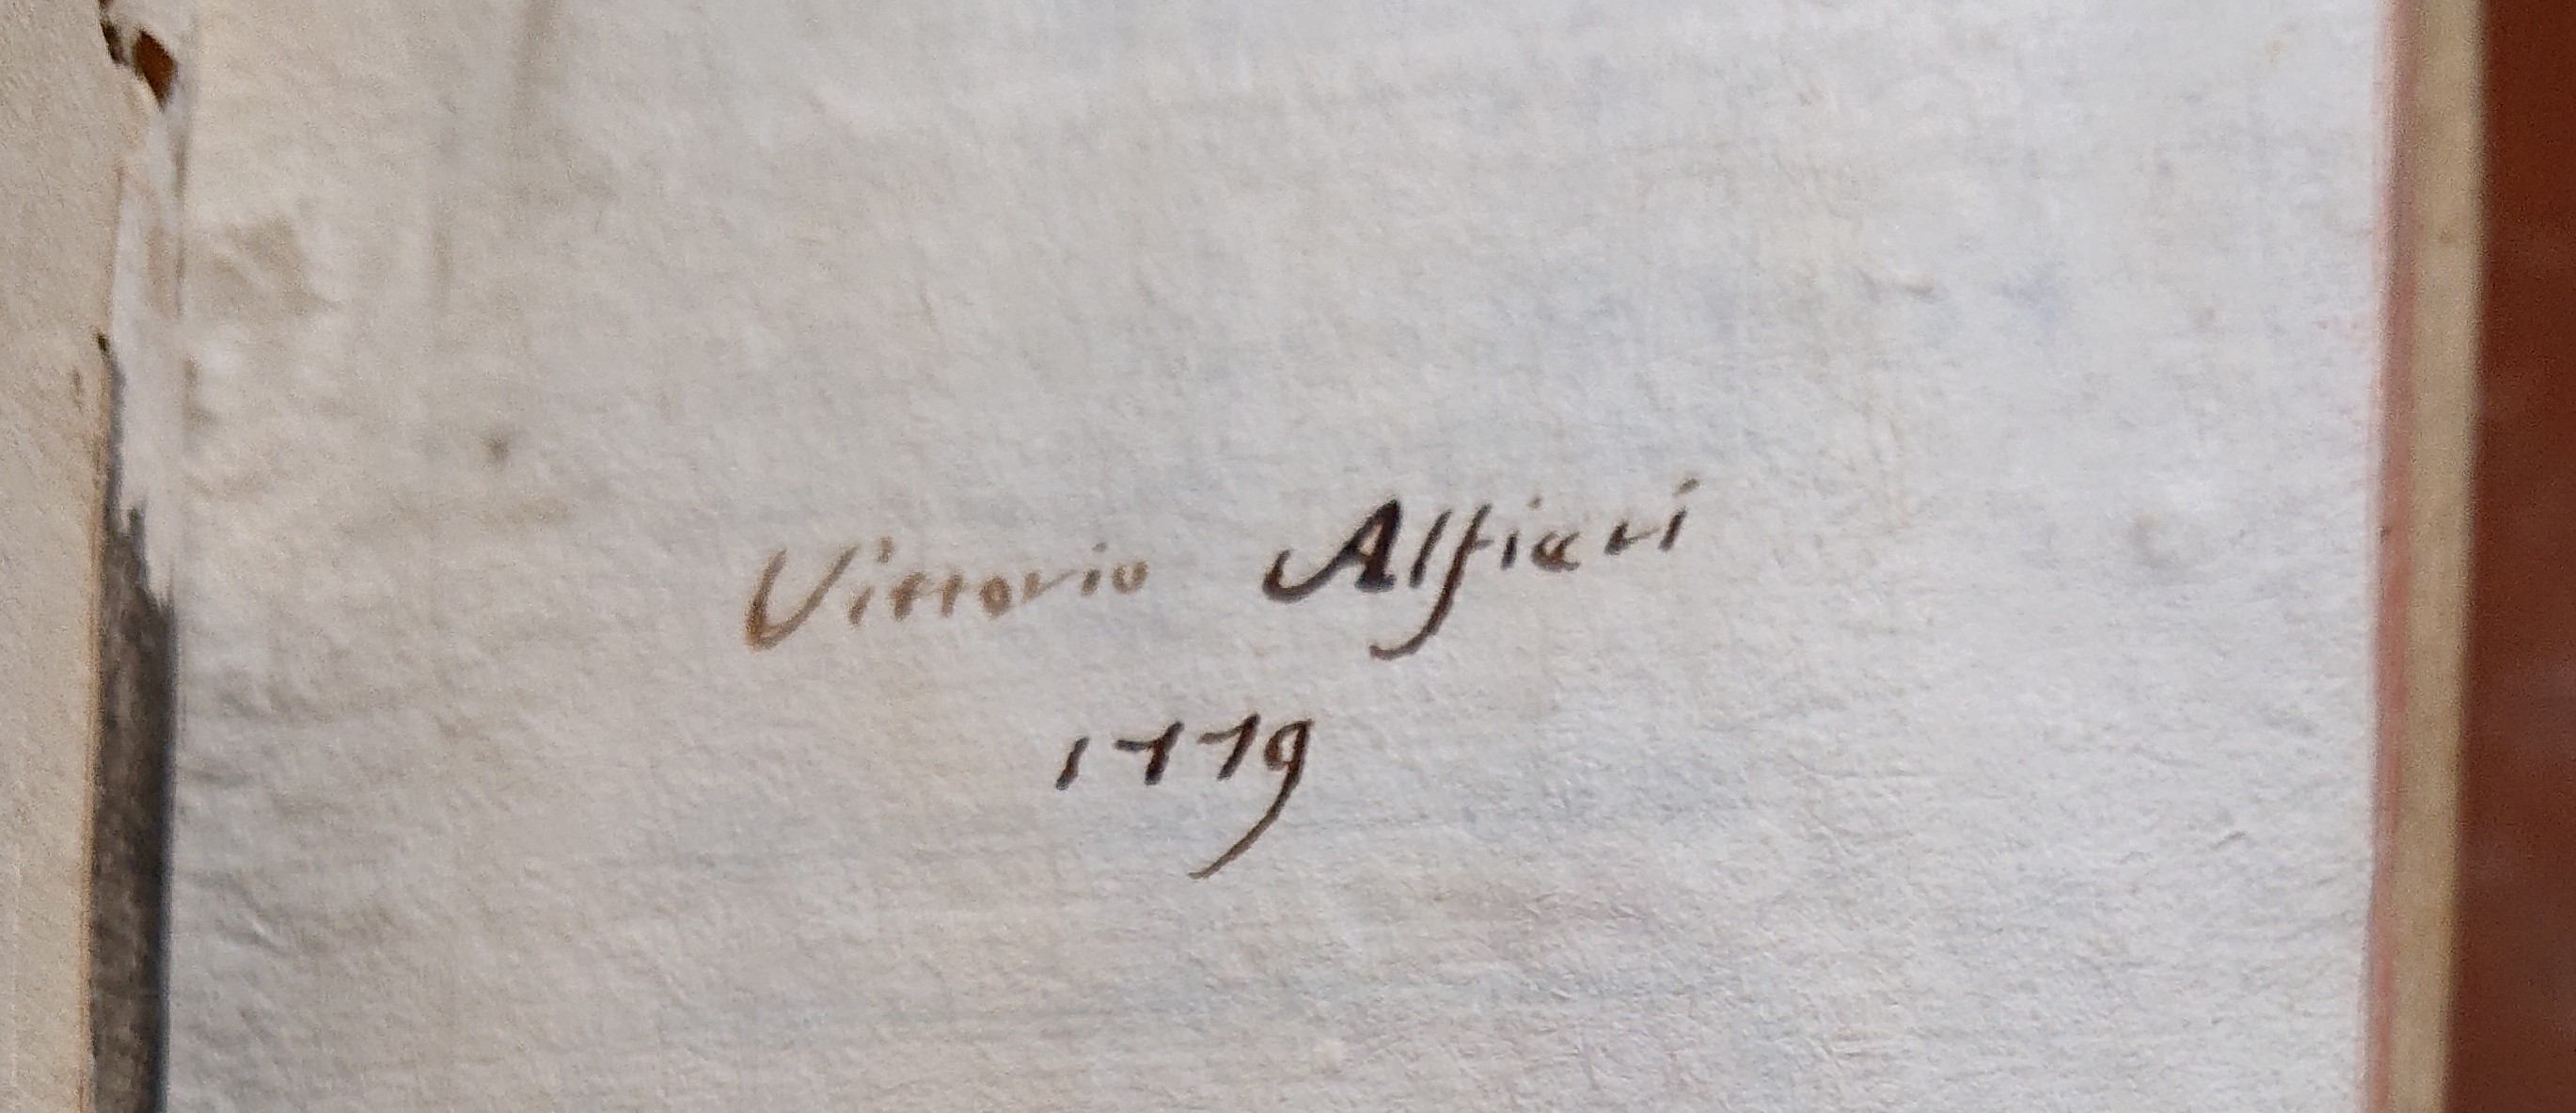 Vittorio Alfieri
1779